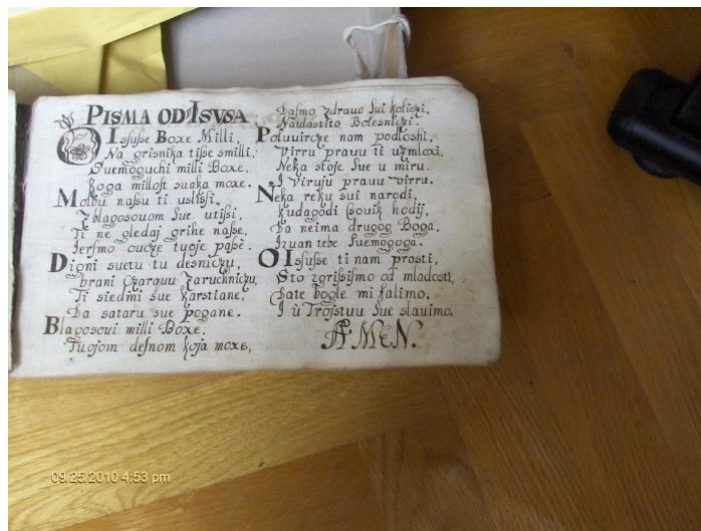 PISMA OD ISUSA
O Isfusse Boxe Milli,
Na grisnika tisse smilli,
Suemoguchi milli Boxe,
koga millost suaka moxe.
Molbu nassu ti uslissi,
Z blagosouom sue utissi,
Ti ne gledaj grihe nasse,
Jersmo oucze tuoje passe.
Digni suetu tu desniczu,
brani Czarquu Zaruchniczu,
Ti siedmi sue karstiane,
Da sataru sue pogane.
Blagosoui milli Boxe,
Tuojom desnom koja moxe,
Dasmo zdrauo sui koliczi,
Nadastito Bolesniczi.
Poluuircze nam podloshi,
Virru prauu ti uzmloxi,
Neka stoje sue u miru.
I Viruju prauu virru.
Neka reku sui narodi,
kudagodi csouik hodij,
Da neima drugog Boga,
Izuan tebe Suemogoga.
O Isfusse ti nam prosti,
Sto zgrissismo od mladosti,
Date bogle mi falimo,
I u Trojstuu sue slauimo.
AMEN.
09/25/2010 4:53 pm